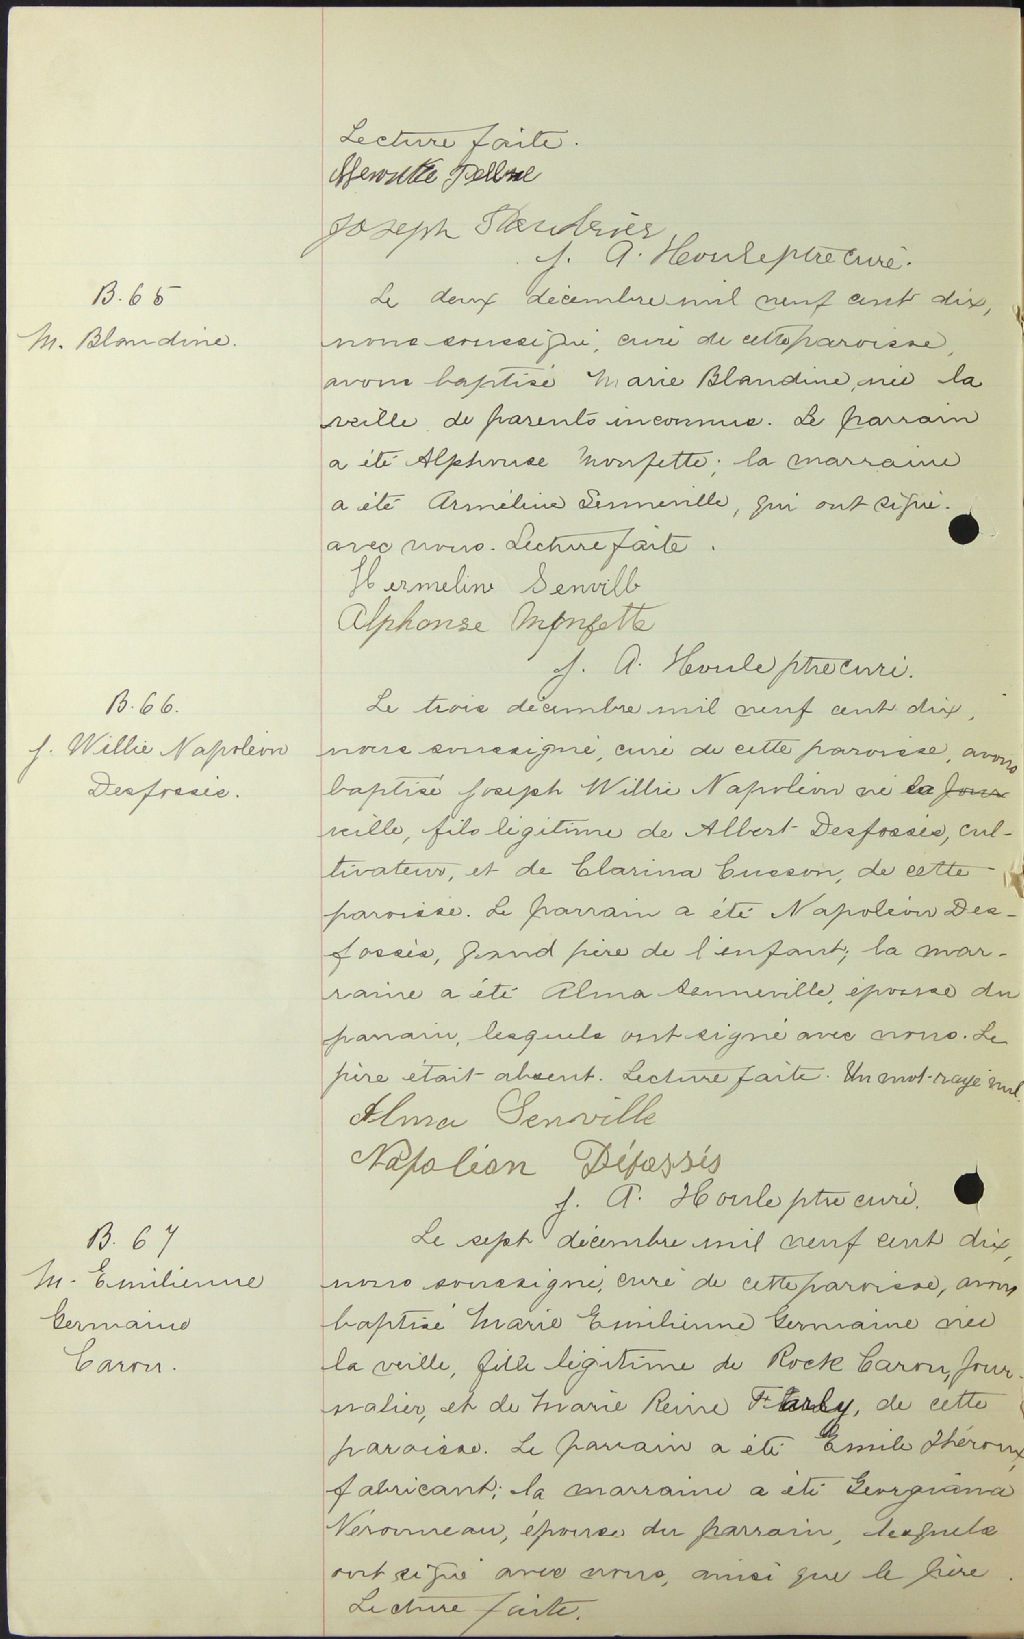 Lecture faite.
Joseph
J. A. Houle ptre curé.
B. 65
M. Blandine.
Le deux décembre mil neuf cent dix,
nous soussigné, curé de cette paroisse,
avons baptisé Marie Blandine, née la
veille de parents inconnus. Le parrain
a été Alphonse Monfette; la marraine
a été Arméline Senneville, qui ont signé
avec nous. Lecture faite.
Hermeline Senville
Alphonse Monfette
J. A. Houle ptre curé.
B. 66.
J. Willie Napoléon
Desfossés.
Le trois décembre mil neuf cent dix,
nous soussigné, curé de cette paroisse, avons
baptisé Joseph Willie Napoléon né la jour
veille, fils légitime de Albert Desfossés, cul-
tivateur, et de Clarina Cusson, de cette
paroisse. Le parrain a été Napoléon Des-
fossés, grand père de l'enfant; la mar-
raine a été Alma Senneville, épouse du
parrain, lesquels ont signé avec nous. Le
père était absent. Lecture faite. Un mot rayé nul.
Alma Senville
Napoléon Défossés
J. A. Houle ptre curé.
B. 67
M. Emilienne
Germaine
Caron.
Le sept décembre mil neuf cent dix,
nous soussigné, curé de cette paroisse, avons
baptisé Marie Emilienne Germaine née
la veille, fille légitime de Rock Caron, jour-
nalier, et de Marie Reine de cette
paroisse. Le parrain a été Emile Théroux,
fabricant; la marraine a été Georgiana
Néronneau, épouse du parrain, lesquels
ont signé avec nous, ainsi que le père.
Lecture faite.